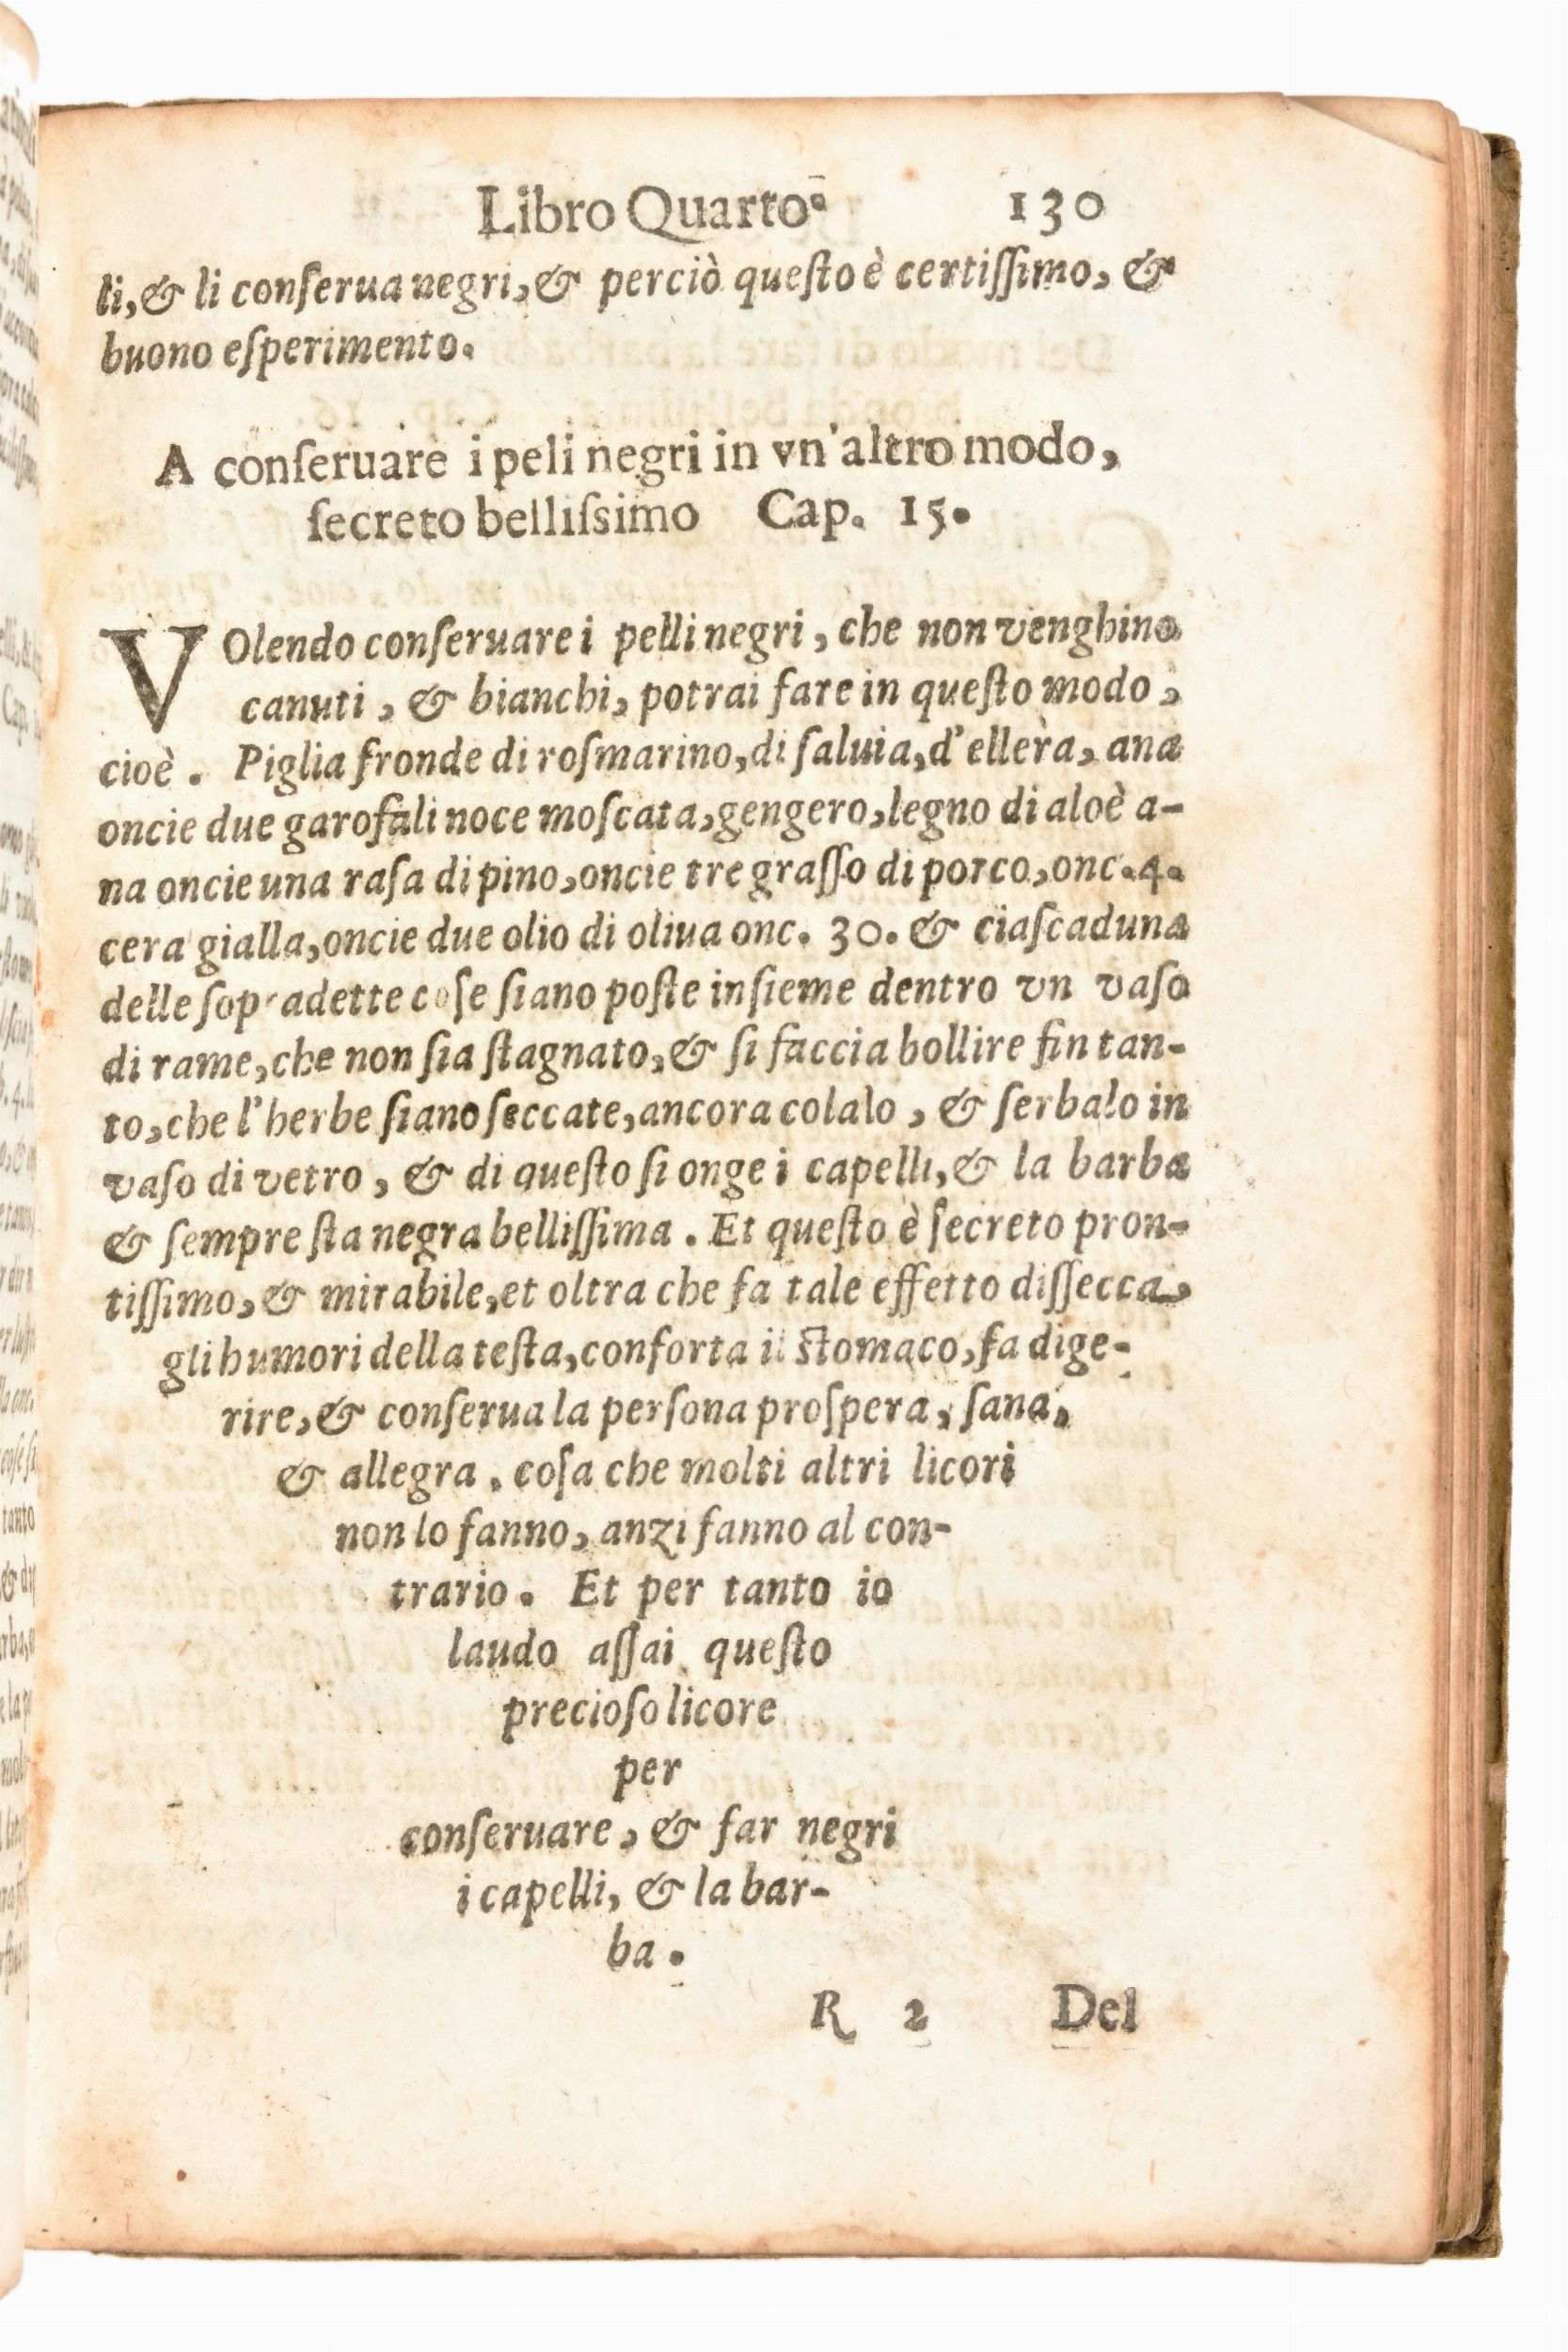 Libro Quarto. 130
li, & li conſerua negri, & perciò queſto è certiſſimo, &
buono eſperimento.
A conſeruare i peli negri in vn'altro modo,
ſecreto belliſsimo Cap. 15.
VOlendo conſeruare i pelli negri, che non venghino
canuti, & bianchi, potrai fare in queſto modo,
cioè. Piglia fronde di roſmarino, di ſaluia, d'ellera, ana
oncie due garofali noce moſcata, gengero, legno di aloè a-
na oncie una raſa di pino, oncie tre graſſo di porco, onc. 4.
cera gialla, oncie due olio di oliua onc. 30. & ciaſcaduna
delle ſopradette coſe ſiano poſte inſieme dentro vn vaſo
di rame, che non ſia ſtagnato, & ſi faccia bollire fin tan-
to, che l'herbe ſiano ſeccate, ancora colalo, & ſerbalo in
vaſo di vetro, & di queſto ſi onge i capelli, & la barba
& ſempre ſta negra belliſſima. Et queſto è ſecreto pron-
tiſſimo, & mirabile, et oltra che fa tale effetto diſſecca,
gli humori della teſta, conforta il ſtomaco, fa dige-
rire, & conſerua la perſona proſpera, ſana,
& allegra. coſa che molti altri licori
non lo fanno, anzi fanno al con-
trario. Et per tanto io
laudo aſſai queſto
precioſo licore
per
conſeruare, & far negri
i capelli, & la bar-
ba.
R 2 Del